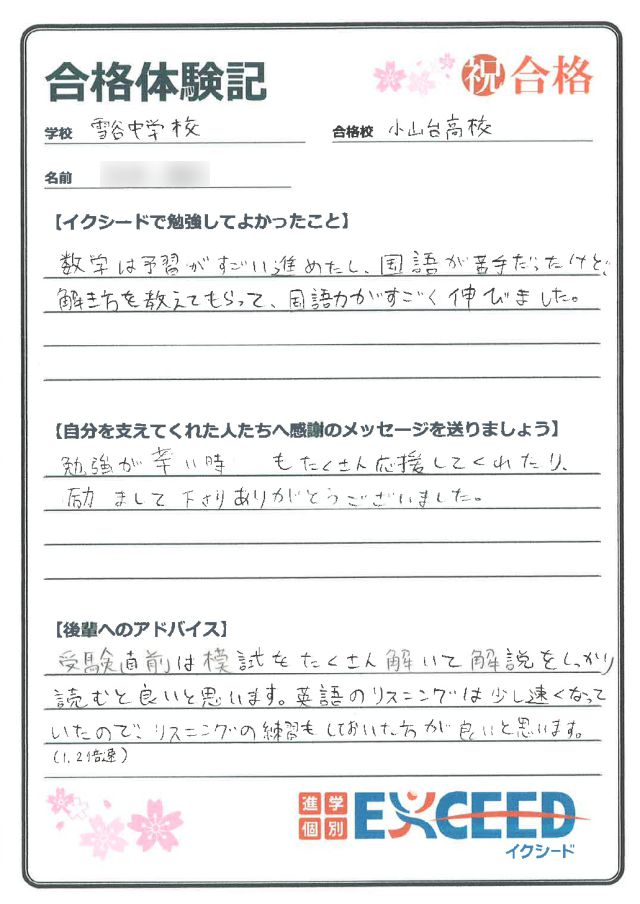 合格体験記
祝 合格
学校 雪谷中学校
合格校 小山台高校
名前
【イクシードで勉強してよかったこと】
数学は予習がすごい進めたし、国語が苦手だったけど、
解き方を教えてもらって、国語力がすごく伸びました。
【自分を支えてくれた人たちへ感謝のメッセージを送りましょう】
勉強が辛い時 もたくさん応援してくれたり、
励 まして下さりありがとうございました。
【後輩へのアドバイス】
受験直前は模試をたくさん解いて解説をしっかり
読むと良いと思います。英語のリスニングは少し速くなって
いたので、リスニングの練習もしておいた方が良いと思います。
(1.2倍速)
進学
個別
EXCEED
イクシード